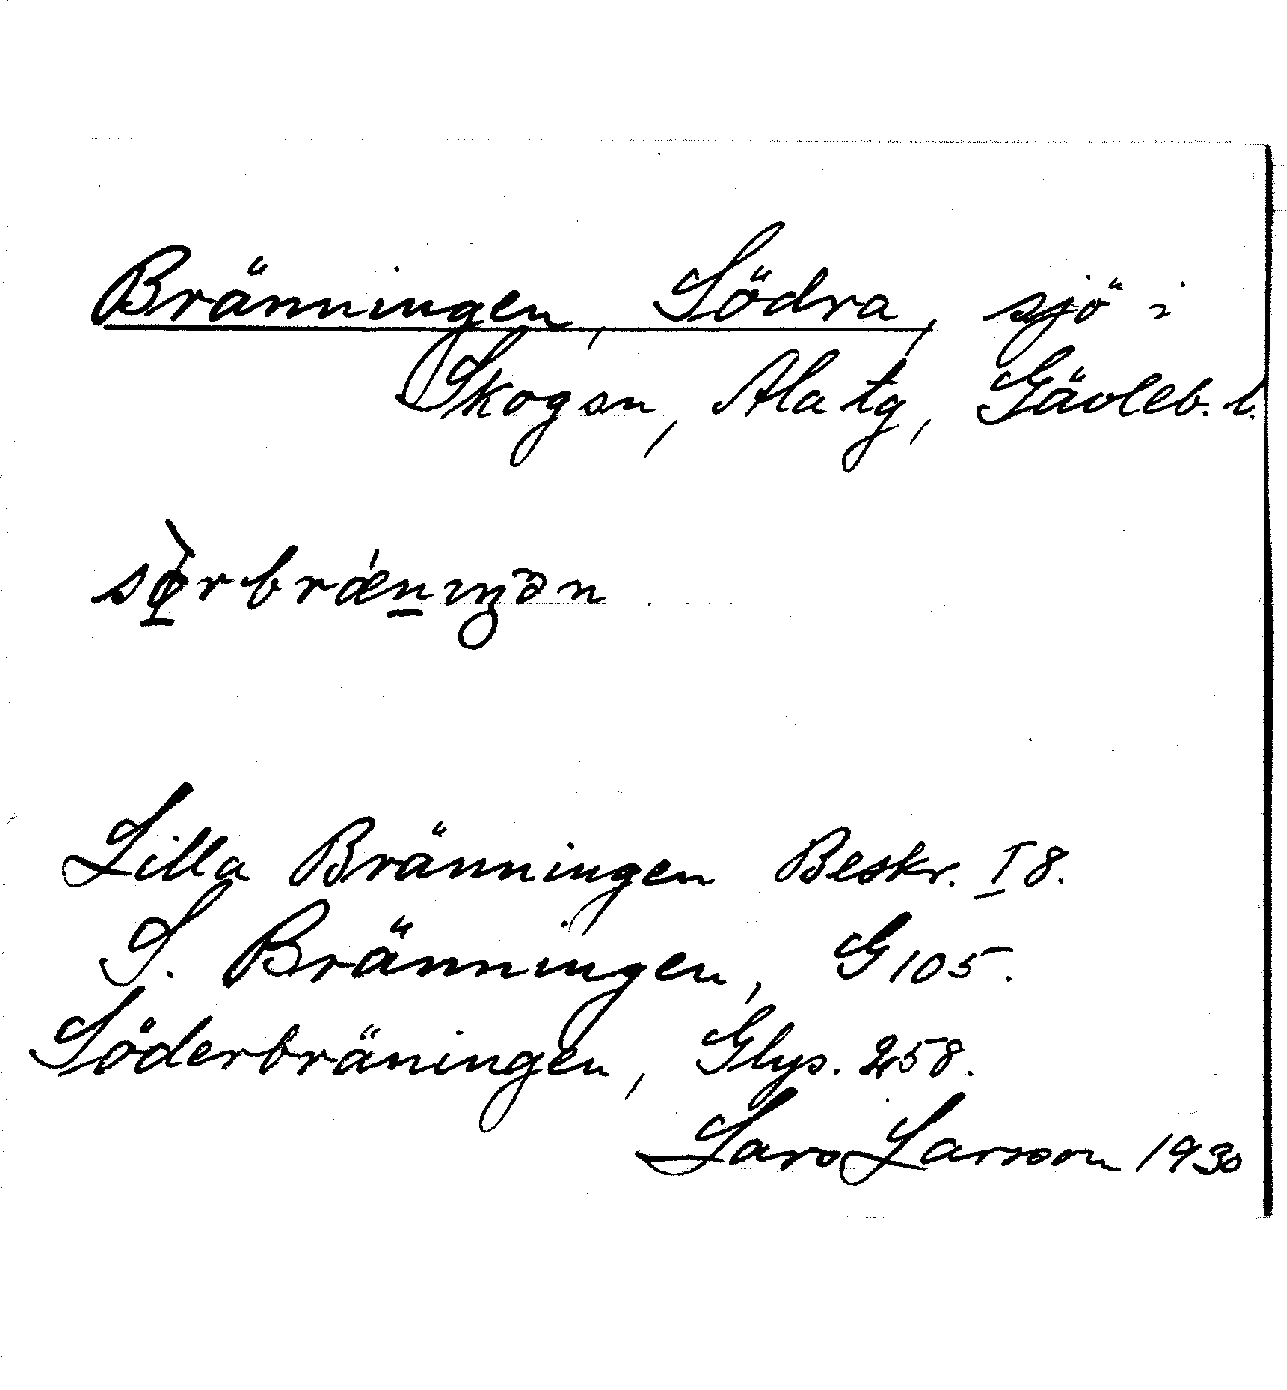 Bränningen, Södra, sjö i
Skogan, Ala tg, Gävleb. l.
sø̱̀rbrǽn̲ıŋən
Lilla Bränningen Beskr. I 8.
S. Bränningen, G 105.
Söderbräningen, Glys. 258.
Lars Larsson 1930